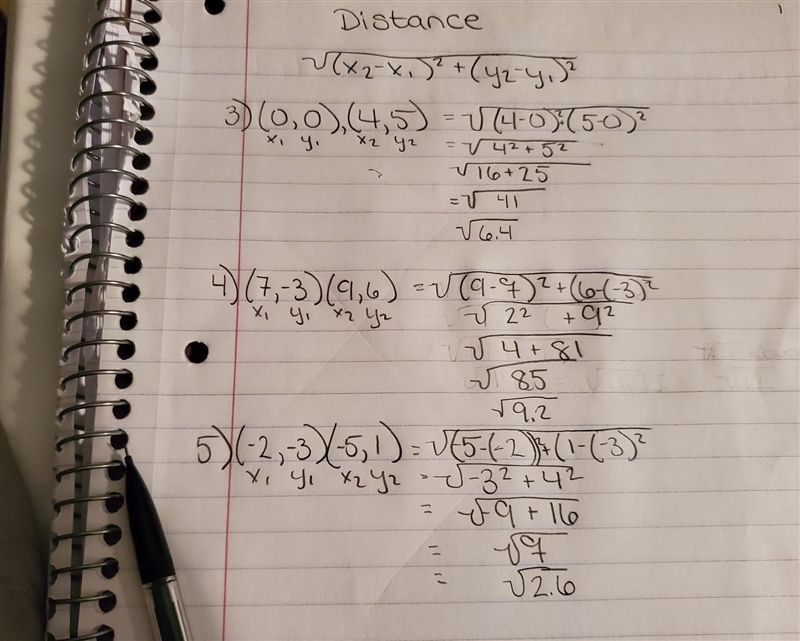 Distance
√(x₂-x₁)² + (y₂-y₁)²
3) (0,0), (4,5) = √(4-0)²+(5-0)²
x₁ y₁ x₂ y₂ = √4² + 5²
√16 + 25
= √41
√6.4
4) (7,-3) (9,6) = √(9-7)² + (6-(-3)²
x₁ y₁ x₂ y₂ √2² + 9²
√4 + 81
√85
√9.2
5) (-2,-3) (-5,1) = √(-5-(-2))²+(1-(-3)²
x₁ y₁ x₂ y₂ = √-3² + 4²
= √-9 + 16
= √9
= √2.6